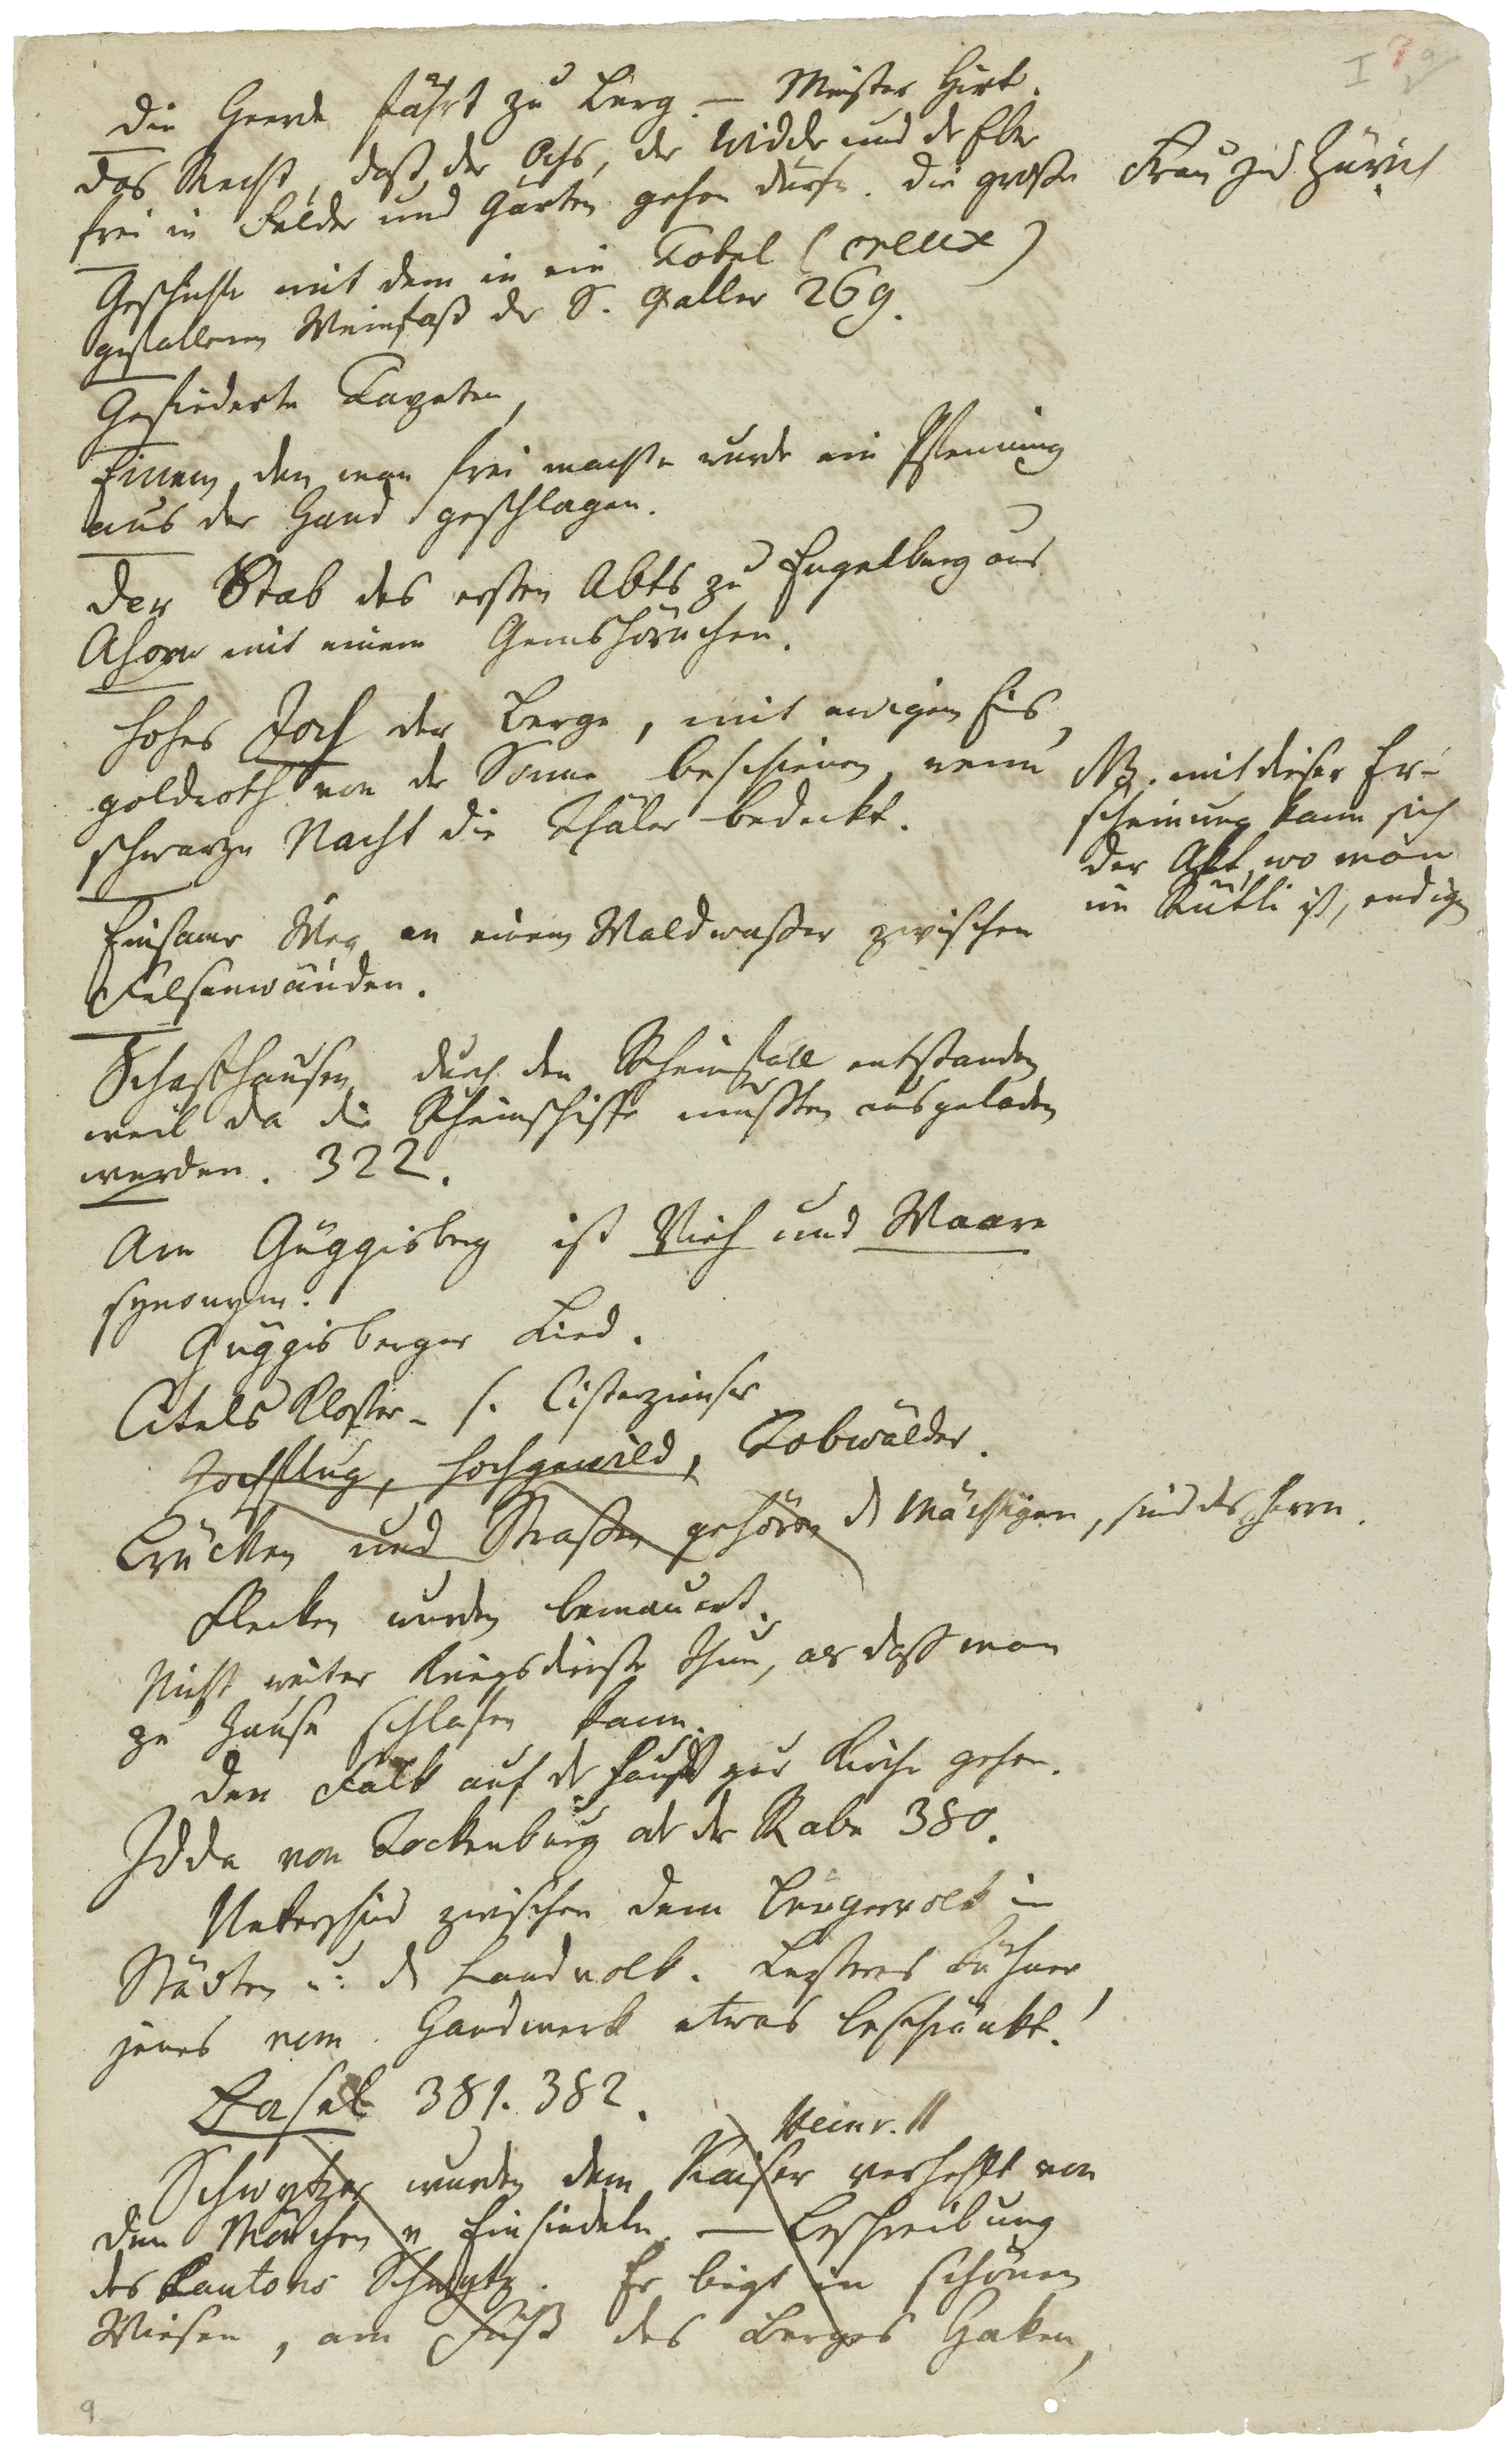 I 9
Die Heerde fährt zu Berg. — Meister Hirt.
Das Recht, daß der Ochs, der Widder und der Eber
frei in Felder und Gärten gehen dürfe. Die große Frau zu Zürich
Geschichte mit dem in ein Tobel (creux)
gefallenen Weinfaß der S. Galler 269.
Gefiederte Tapeten,
Einem, den man frei machte wurde ein Pfenning
aus der Hand geschlagen.
Der Stab des ersten Abts zu Engelberg aus
Ahorn mit einem Gemshörnchen.
Hohes Joch der Berge, mit ewigem Eis,
goldroth von der Sonne beschienen, wenn
schwarze Nacht die Thäler bedeckt.
NB. mit dieser Er-
scheinung kann sich
der Akt, wo man
im Rütli ist, endigen
Einsamer Weg an einem Waldwaßer zwischen
Felsenwänden.
Schaffhausen durch den Rheinfall entstanden
weil da die Rheinschiffe mußten ausgeladen
werden. 322.
Am Güggisberg ist Vieh und Waare
synonym.
Güggisberger Lied.
Citels Kloster – s. Cisterzienser
Hochflug, Hochgewild, Tobwälder.
Brücken und Straßen gehören d Mächtigen, sind des Herrn.
Flecken wurden bemauert.
Nicht weiter Kriegsdienste thun, als daß man
zu Hause schlafen kann.
Den Falk auf der Faust zur Kirche gehen.
Idda von Tockenburg od der Rabe 380.
Unterschied zwischen dem Bürgervolk in
Städten u: d Landvolk. Lezteres kühner,
jenes vom Handwerk etwas beschränkt.
Basel 381. 382.
Heinr. II
Schwytzer wurden dem Kaiser verhaßt von
den Mönchen v Einsiedeln. — Beschreibung
des Kantons Schwytz. Er liegt in schönen
Wiesen, am Fuß des Berges Haken,
9